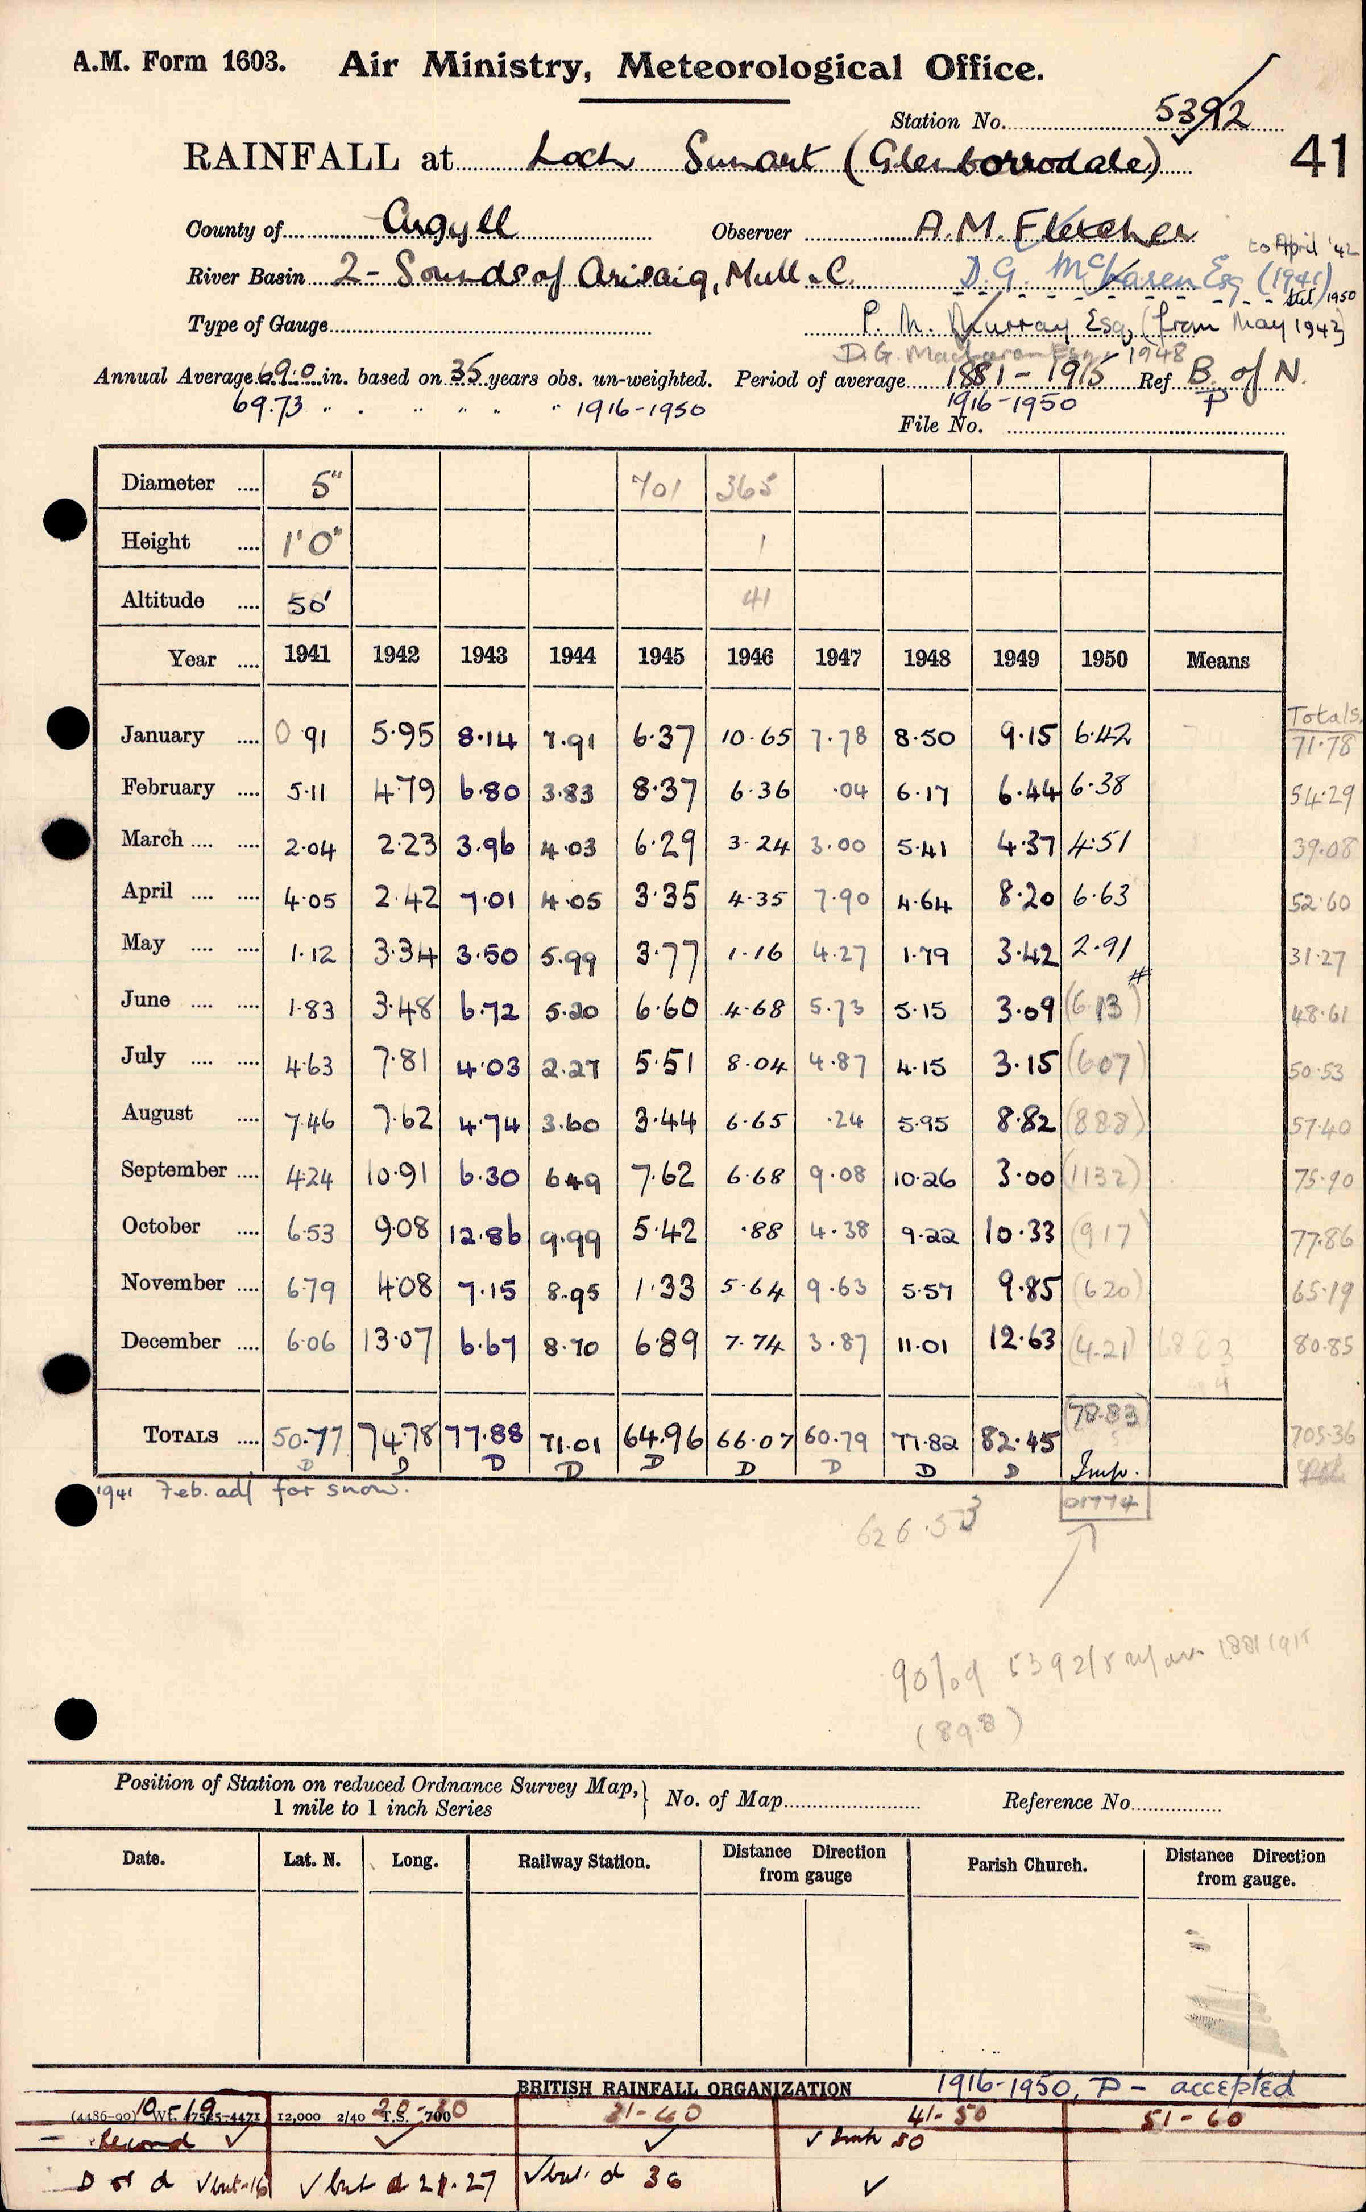 A.M. Form 1603. Air Ministry, Meteorological Office.
Station No. 5392
RAINFALL at Loch Sunart (Glenborrodale) 41
County of Argyll Observer A.M. Fletcher to April '42
River Basin 2 - Sounds of Arisaig, Mull &C. D.G. McLaren Esq (1941)
Type of Gauge P. M. Murray Esq, (from May 1942) 1950
D.G. MacLaren Esq. 1948
Annual Average 69.0 in. based on 35 years obs. un-weighted. Period of average 1881 - 1915 Ref B. of N.
69.73 " " " " " " 1916-1950 1916-1950 P
File No.
Diameter 5" 701 365
Height 1' 0" 1
Altitude 50' 41
Year 1941 1942 1943 1944 1945 1946 1947 1948 1949 1950 Means
Totals
January 0 91 5.95 8.14 7.91 6.37 10.65 7.78 8.50 9.15 6.42 71.78
February 5.11 4.79 6.80 3.83 8.37 6.36 .04 6.17 6.44 6.38 54.29
March 2.04 2.23 3.96 4.03 6.29 3.24 3.00 5.41 4.37 4.51 39.08
April 4.05 2.42 7.01 4.05 3.35 4.35 7.90 4.64 8.20 6.63 52.60
May 1.12 3.34 3.50 5.99 3.77 1.16 4.27 1.79 3.42 2.91 31.27
June 1.83 3.48 6.72 5.20 6.60 4.68 5.73 5.15 3.09 (6 13) # 48.61
July 4.63 7.81 4.03 2.27 5.51 8.04 4.87 4.15 3.15 (607) 50.53
August 7.46 7.62 4.74 3.60 3.44 6.65 .24 5.95 8.82 (888) 57.40
September 4.24 10.91 6.30 6 49 7.62 6.68 9.08 10.26 3.00 (1132) 75.90
October 6.53 9.08 12.86 9.99 5.42 .88 4.38 9.22 10.33 (917) 77.86
November 6.79 4.08 7.15 8.95 1.33 5.64 9.63 5.57 9.85 (620) 65.19
December 6.06 13.07 6.67 8.70 6.89 7.74 3.87 11.01 12.63 (4.21) 80.85
TOTALS 50.77 74.78 77.88 71.01 64.96 66.07 60.79 77.82 82.45 (78.83) 705.36
D D D D D D D D D Imp.
1941 Feb. adj for snow. 01774
626.53
90% of 5392/8 1881 1915
(89.8)
Position of Station on reduced Ordnance Survey Map,
1 mile to 1 inch Series } No. of Map Reference No
Date. Lat. N. Long. Railway Station. Distance Direction from gauge Parish Church. Distance Direction from gauge.
BRITISH RAINFALL ORGANIZATION 1916-1950, P - accepted
(4486-90) Wt. 17515-4471 12,000 2/40 T.S. 700
10 - 19 20-30 31-40 41-50 51-60
- Record ✓ ✓ ✓ ✓ 50
D or d ✓ but -16 ✓ but d 21.27 ✓ but. d 36 ✓